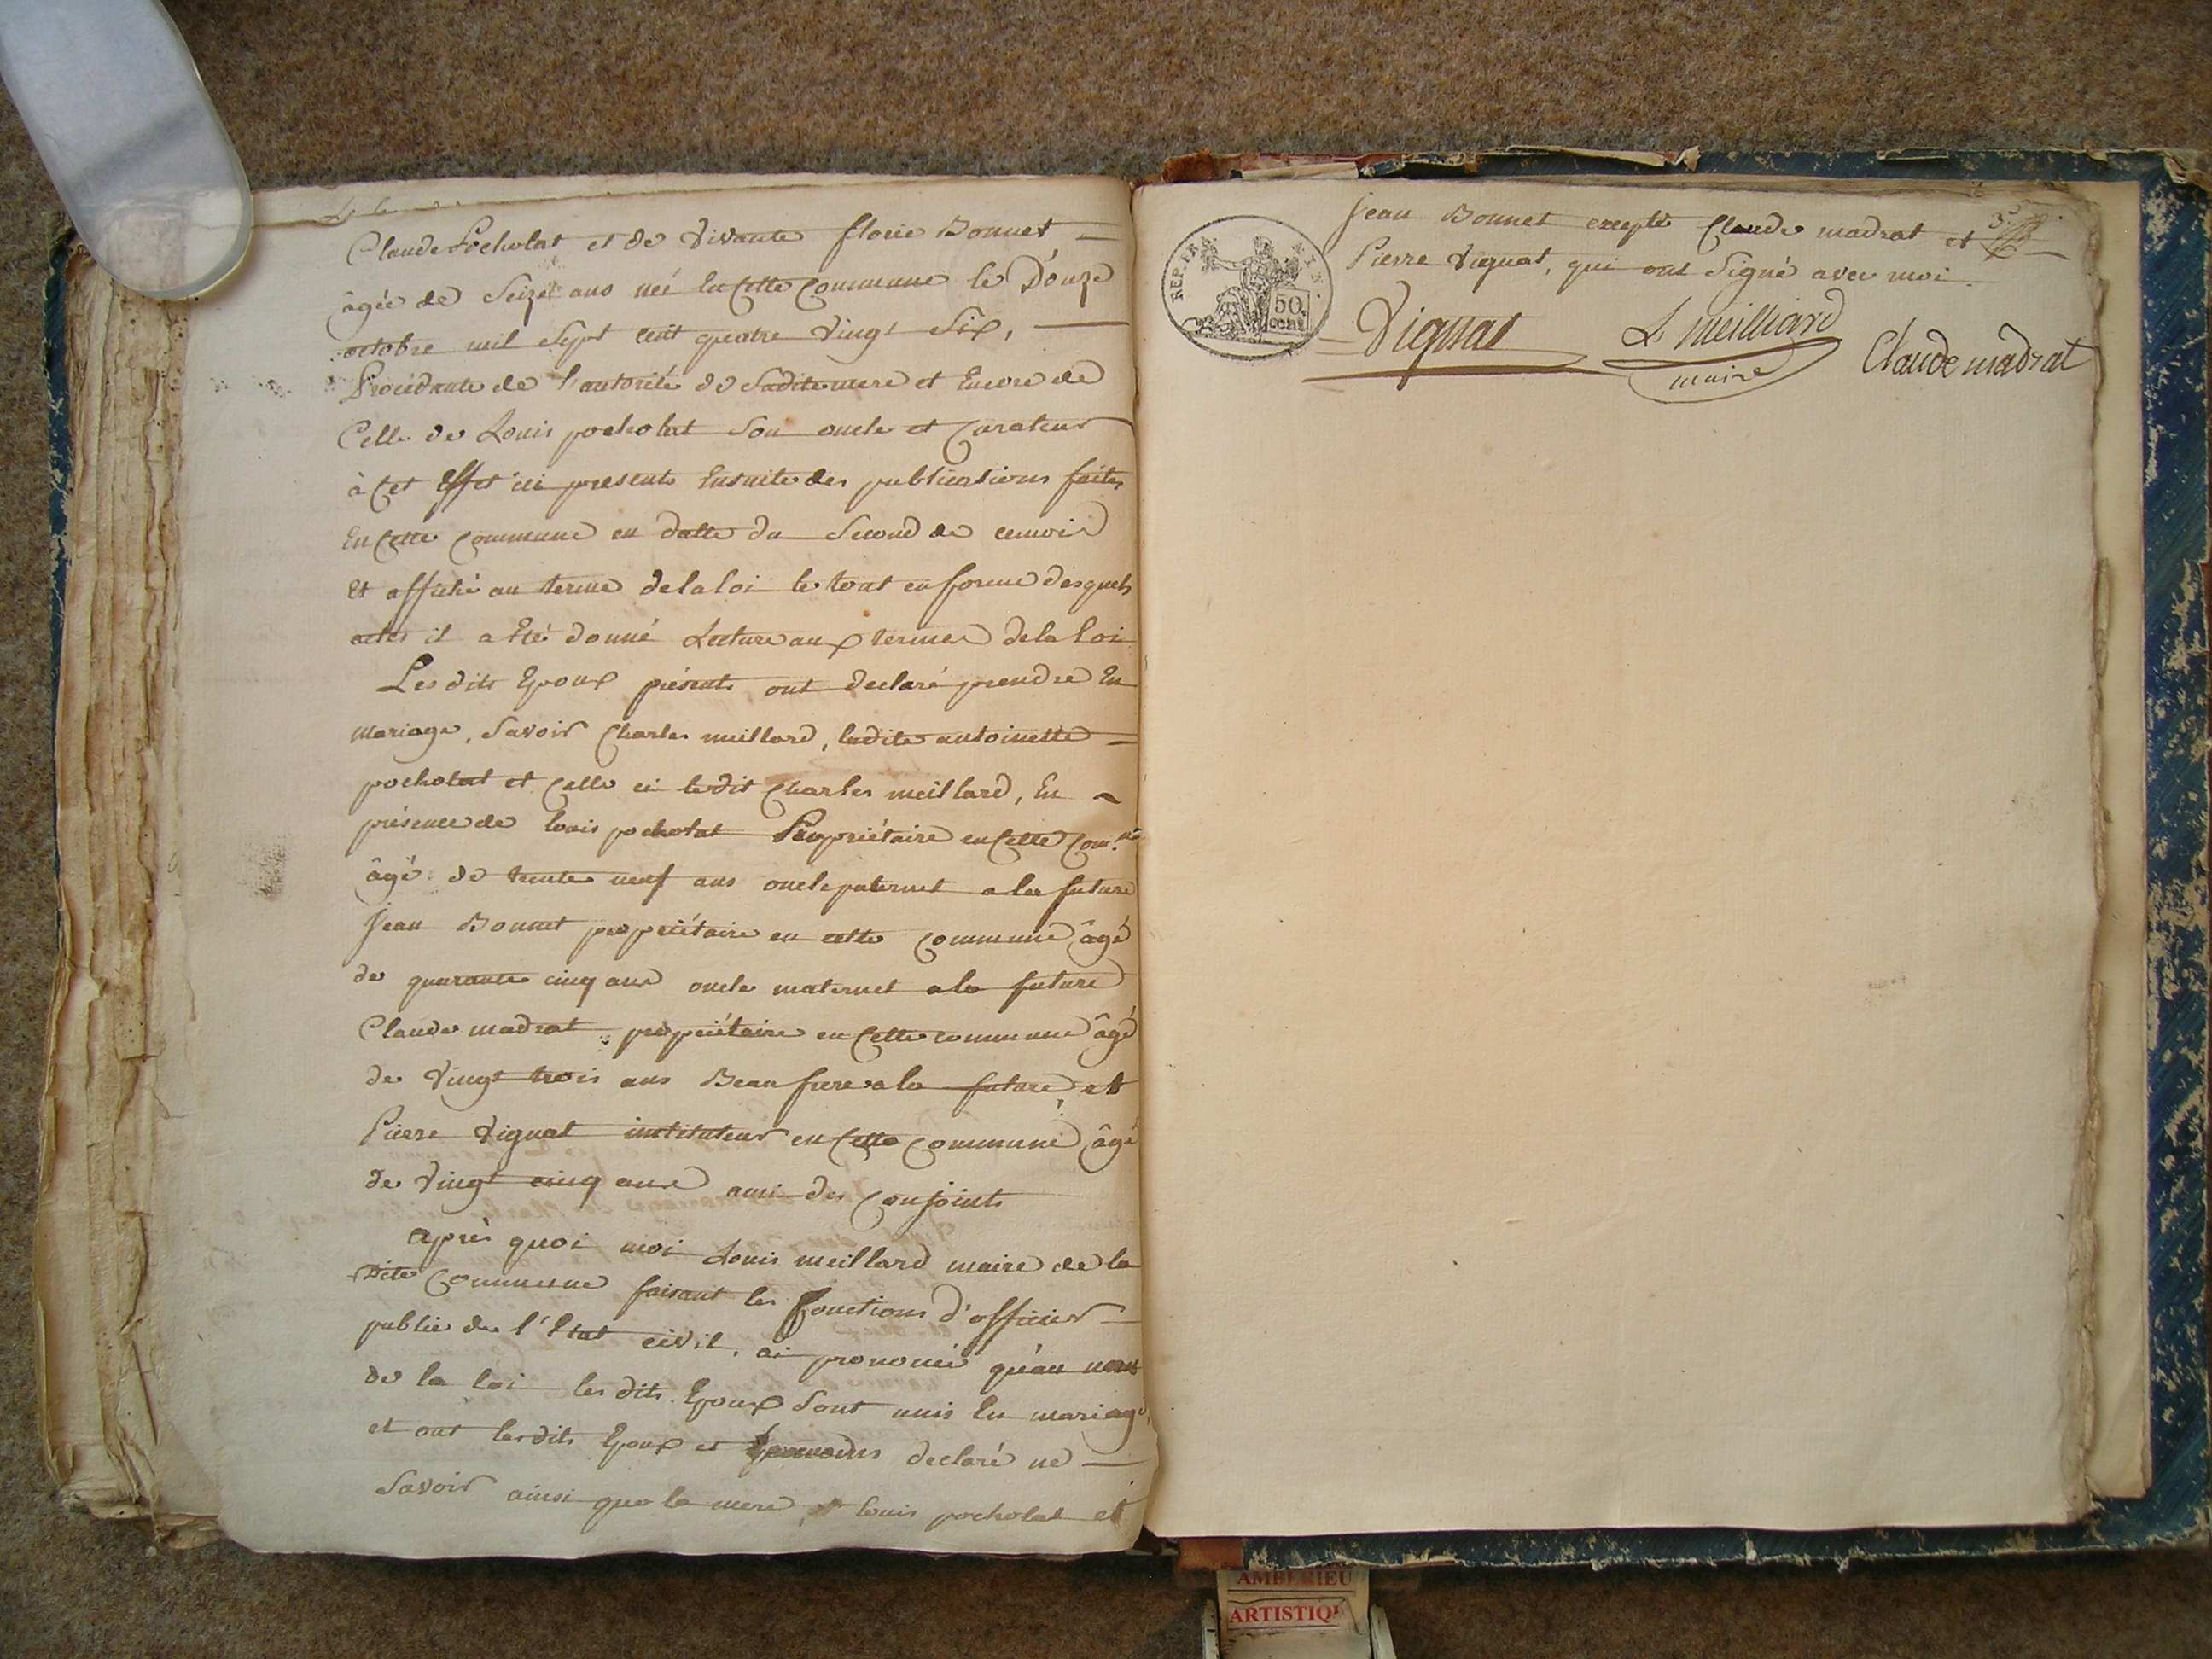 Claude Pocholat et de vivante florie Bonnet
âgée de Seize ans née en cette Commune le Douze
octobre mil Sept cent quatre vingt Six,
Procédante de l'autorité de Sadite mere et Encore de
Celle de Louis pocholat Son oncle et Curateur
à Cet Effet ici présents Ensuite des publications faites
En Cette Commune en datte du Second de cemois
Et affiché au terme de la loi le tout en forme desquels
actes il a Eté donné Lecture aux termes de la loi
Les dits Epoux présents ont declaré prendre En
mariage, Savoir Charles meillard, ladite antoinette
pocholat et Celle ci ledit Charles meillard, En
présence de louis pocholat Propriétaire en Cette Com.ne
âgé de trente neuf ans oncle paternel a la future
Jean Bonnet propriétaire en cette Commune âgé
de quarante cinq ans oncle maternel a la future
Claude madrat propriétaire en Cette commune âgé
de vingt trois ans Beau frere a la future, et
Pierre Vignat instituteur en Cette Commune âgé
de vingt cinq ans ami des Conjoints
après quoi moi Louis meillard maire de la
Dite Commune faisant les fonctions d'officier
public de l'Etat civil, ai prononcé qu'au nom
de la loi les dits Epoux Sont unis En mariage,
et ont lesdits Epoux et declaré ne
Savoir ainsi que la mere, louis pocholat et
Jean Bonnet excepté Claude madrat et
Pierre Vignat, qui ont Signé avec moi.
REP. FRA
50
cent
Vignat
L Meilliard
maire
Claude madrat
AMBERIEU
ARTISTIQ